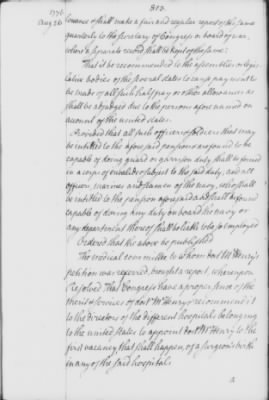 1776
Aug 26
803.
lowance shall make a fair and regular report of the same
quarterly to the secretary of Congress or board of war,
where a separate record shall be kept of the same:
That it be recommended to the assemblies or legis
lative bodies of the several states to cause payment to
be made of all such half pay or other allowances as
shall be adjudged due to the persons aforenamed on
account of the united states.
Provided that all such officers & soldiers that may
be entitled to the aforesaid pension & are found to be
capable of doing guard or garrison duty shall be formed
in a corps of invalids & subject to the said duty, and all
officers, marines and seamen of the navy, who shall
be entitled to the pension aforesaid and shall be found
capable of doing any duty on board the navy or
any department thereof shall be liable to be so employed
Ordered that the above be published
The medical committee to whom doct McHenry's
petition was referred, brought a report, whereupon
Resolved That Congress have a proper sense of the
merit & services of doct McHenry & recommend it
to the directors of the different hospitals belonging
to the united states to appoint doct McHenry to the
first vacancy that shall happen of a surgeon's birth
in any of the said hospitals